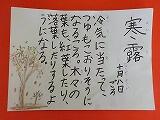 寒露
十月八日ごろ
冷気に当たって、
つゆもこおりそうに
なるころ。木々の
葉も、紅葉したり、
落葉したりするよ
うになる。